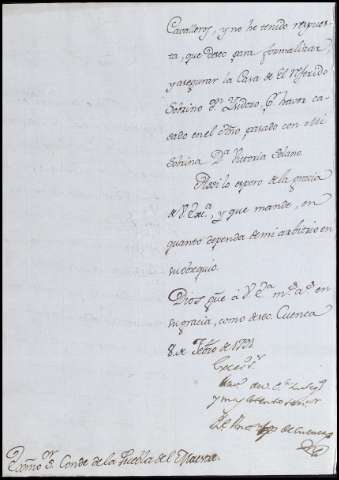 Cavalleros, y no he tenido respues-
ta, que deseo para formalizar,
y asegurar la Casa de el referido
Sobrino Dn. Ysidoro, pr. haver ca-
sado en el otoño pasado con Mi
Sobrina Da. Victoria Solano.
Assi lo espero de la gracia
de V. Exca., y que mande, en
quanto dependa de mi arbitrio en
su obsequio.
Dios gue. a V. Exa. ms. as. en
su gracia, como deseo. Cuenca
8 de Febro. de 1791.
Excmo. Sr.
de V. Exa. su Segr.
y mas atento servr.
de Cuenca
Exmo. Sr. Conde de la Puebla del Maestre.